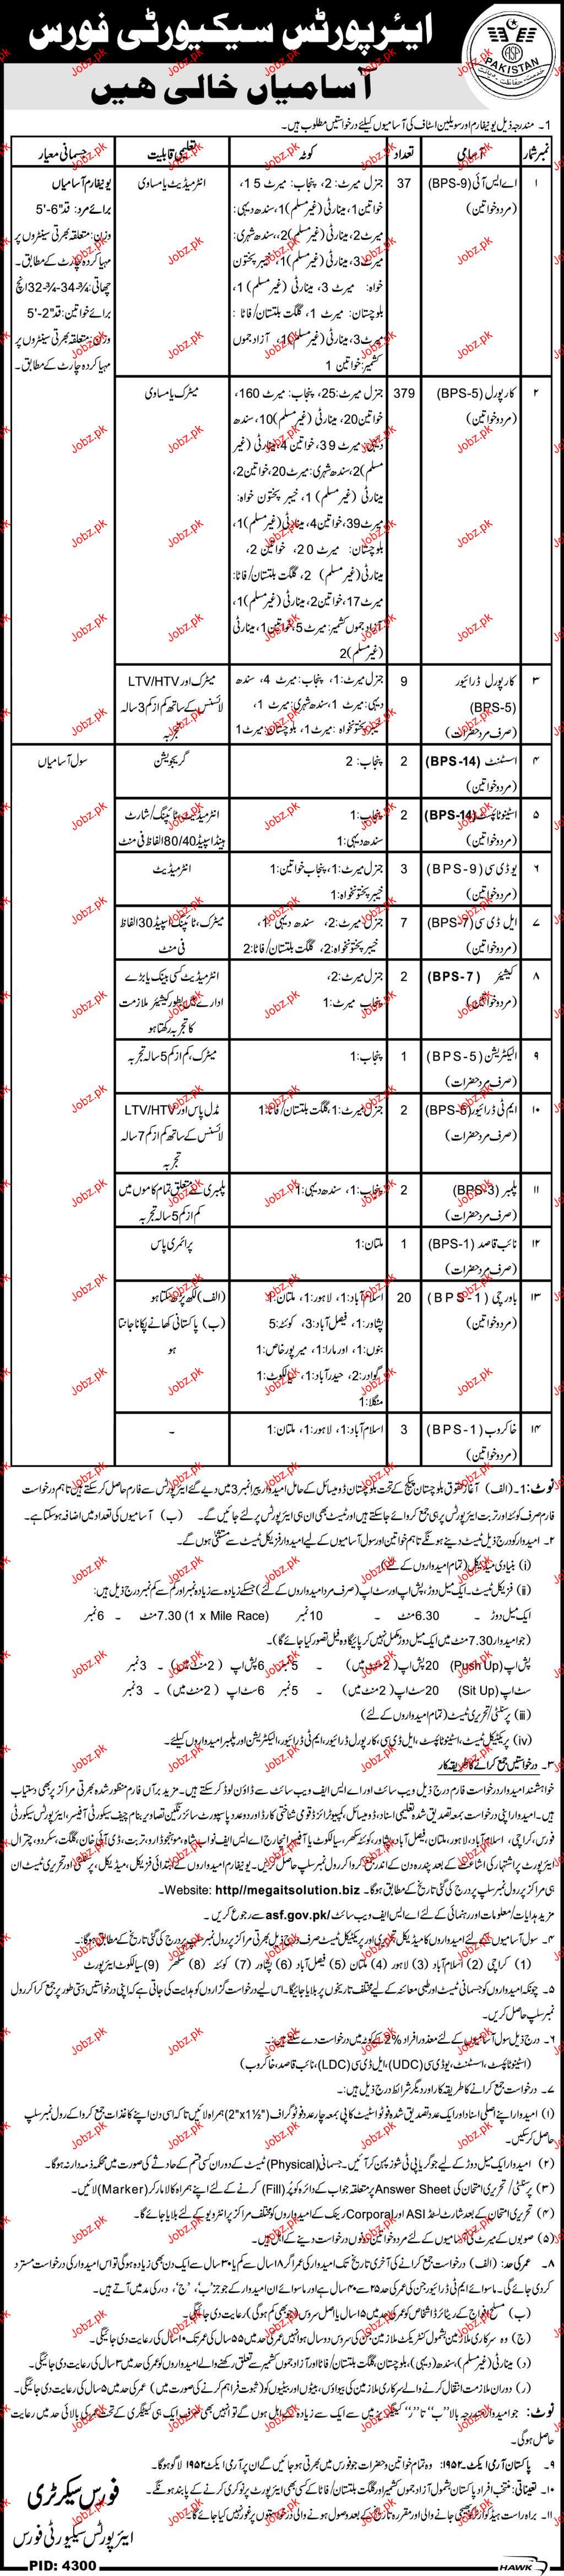 ایئرپورٹس سیکیورٹی فورس
PAKISTAN
ASF
آسامیاں خالی ہیں
1۔ مندرجہ ذیل یونیفارم اور سویلین اسٹاف کی آسامیوں کیلئے درخواستیں مطلوب ہیں۔
نمبر شمار آسامی تعداد کوٹہ تعلیمی قابلیت جسمانی معیار
۱ اے ایس آئی (BPS-9) (مرد و خواتین) 37
جنرل میرٹ: 2، پنجاب: میرٹ 15،
خواتین 1، مینارٹی (غیر مسلم) 1، سندھ دیہی:
میرٹ 2، مینارٹی (غیر مسلم) 2، سندھ شہری:
میرٹ 3، مینارٹی (غیر مسلم) 1، خیبر پختون
خواہ: میرٹ 3، مینارٹی (غیر مسلم) 1،
بلوچستان: میرٹ 1، گلگت بلتستان/فاٹا:
میرٹ 3، مینارٹی (غیر مسلم) 1، آزاد جموں
کشمیر: خواتین 1
انٹرمیڈیٹ یا مساوی
یونیفارم آسامیاں
برائے مرد: قد "6-'5
وزن: متعلقہ بھرتی سینٹروں پر
مہیا کردہ چارٹ کے مطابق۔
چھاتی: ¾-34-¾-32 انچ
برائے خواتین: قد "2-'5
وزن: متعلقہ بھرتی سینٹروں پر
مہیا کردہ چارٹ کے مطابق۔
۲ کارپورل (BPS-5) (مرد و خواتین) 379
جنرل میرٹ: 25، پنجاب: میرٹ 160،
خواتین 20، مینارٹی (غیر مسلم) 10، سندھ
دیہی: میرٹ 39، خواتین 4، مینارٹی (غیر
مسلم) 2، سندھ شہری: میرٹ 20، خواتین 2،
مینارٹی (غیر مسلم) 1، خیبر پختون خواہ:
میرٹ 39، خواتین 4، مینارٹی (غیر مسلم) 1،
بلوچستان: میرٹ 20، خواتین 2،
مینارٹی (غیر مسلم) 2، گلگت بلتستان/فاٹا:
میرٹ 17، خواتین 2، مینارٹی (غیر مسلم) 1،
آزاد جموں کشمیر: میرٹ 5، خواتین 1، مینارٹی
(غیر مسلم) 2
میٹرک یا مساوی
۳ کارپورل ڈرائیور (BPS-5) (صرف مرد حضرات) 9
جنرل میرٹ: 1، پنجاب: میرٹ 4، سندھ
دیہی: میرٹ 1، سندھ شہری: میرٹ 1،
خیبر پختونخواہ: میرٹ 1، بلوچستان: میرٹ 1
میٹرک اور LTV/HTV
لائسنس کے ساتھ کم از کم 3 سالہ
تجربہ
۴ اسسٹنٹ (BPS-14) (مرد و خواتین) 2 پنجاب: 2 گریجویشن سول آسامیاں
۵ اسٹینو ٹائپسٹ (BPS-14) (مرد و خواتین) 2
پنجاب: 1
سندھ دیہی: 1
انٹرمیڈیٹ، ٹائپنگ/شارٹ
ہینڈ اسپیڈ 80/40 الفاظ فی منٹ
۶ یو ڈی سی (BPS-9) (مرد و خواتین) 3
جنرل میرٹ: 1، پنجاب خواتین: 1
خیبر پختونخواہ: 1
انٹرمیڈیٹ
۷ ایل ڈی سی (BPS-7) (مرد و خواتین) 7
جنرل میرٹ: 2، سندھ دیہی: 1،
خیبر پختونخواہ: 2، گلگت بلتستان/فاٹا: 2
میٹرک، ٹائپنگ اسپیڈ 30 الفاظ
فی منٹ
۸ کیشیئر (BPS-7) (مرد و خواتین) 2
جنرل میرٹ: 2،
پنجاب میرٹ: 1
انٹرمیڈیٹ کسی بینک یا بڑے
ادارے میں بطور کیشیئر ملازمت
کا تجربہ رکھتا ہو
۹ الیکٹریشن (BPS-5) (صرف مرد حضرات) 1 پنجاب: 1 میٹرک، کم از کم 5 سالہ تجربہ
۱۰ ایم ٹی ڈرائیور (BPS-5) (صرف مرد حضرات) 2 جنرل میرٹ: 1، گلگت بلتستان/فاٹا: 1
مڈل پاس اور LTV/HTV
لائسنس کے ساتھ کم از کم 7 سالہ
تجربہ
۱۱ پلمبر (BPS-3) (صرف مرد حضرات) 2 پنجاب: 1، سندھ دیہی: 1
پلمبری کے متعلق تمام کاموں میں
کم از کم 5 سالہ تجربہ
۱۲ نائب قاصد (BPS-1) (صرف مرد حضرات) 1 ملتان: 1 پرائمری پاس
۱۳ باورچی (BPS-1) (مرد و خواتین) 20
اسلام آباد: 1، لاہور: 1، ملتان: 1
پشاور: 1، فیصل آباد: 3، کوئٹہ: 5
بنوں: 1، اورمارا: 1، میرپور خاص: 1
گوادر: 2، حیدر آباد: 1، سیالکوٹ: 1
منگلا: 1
(الف) لکھ پڑھ سکتا ہو
(ب) پاکستانی کھانے پکانا جانتا
ہو
۱۴ خاکروب (BPS-1) (مرد و خواتین) 3 اسلام آباد: 1، لاہور: 1، ملتان: 1 -
نوٹ: 1۔ (الف) آغاز حقوق بلوچستان پیکج کے تحت بلوچستان ڈومیسائل کے حامل امیدوار پیرا نمبر 3 میں دیے گئے ایئرپورٹس سے فارم حاصل کر سکتے ہیں تاہم درخواست
فارم صرف کوئٹہ اور تربت ایئرپورٹس پر ہی جمع کروائے جا سکتے ہیں اور ٹیسٹ بھی ان ہی ایئرپورٹس پر لئے جائیں گے۔ (ب) آسامیوں کی تعداد میں اضافہ ہو سکتا ہے۔
۲۔ امیدوار کو درج ذیل ٹیسٹ دینے ہونگے تاہم خواتین اور سول آسامیوں کے لیے امیدوار فزیکل ٹیسٹ سے مستثنیٰ ہوں گے۔
(i) بنیادی میڈیکل (تمام امیدواروں کے لئے)۔
(ii) فزیکل ٹیسٹ۔ ایک میل دوڑ، پش اپ اور سٹ اپ (صرف مرد امیدواروں کے لئے) جسکے زیادہ سے زیادہ نمبر اور کم سے کم نمبر درج ذیل ہیں:
ایک میل دوڑ - 6.30 منٹ - 10 نمبر (1 x Mile Race) 7.30 منٹ - 6 نمبر
(جو امیدوار 7.30 منٹ میں ایک میل دوڑ مکمل نہیں کر پائیگا وہ فیل تصور کیا جائے گا)۔
پش اپ (Push Up) 20 پش اپ (2 منٹ میں) - 5 نمبر 6 پش اپ (2 منٹ میں) - 3 نمبر
سٹ اپ (Sit Up) 20 سٹ اپ (2 منٹ میں) - 5 نمبر 6 سٹ اپ (2 منٹ میں) - 3 نمبر
(iii) پرسنلٹی/تحریری ٹیسٹ (تمام امیدواروں کے لئے)
(iv) پریکٹیکل ٹیسٹ، اسٹینو ٹائپسٹ، ایل ڈی سی، کارپورل ڈرائیور، ایم ٹی ڈرائیور، الیکٹریشن اور پلمبر امیدواروں کیلئے۔
۳۔ درخواستیں جمع کرانے کا طریقہ کار
خواہشمند امیدوار درخواست فارم درج ذیل ویب سائٹ اور اے ایس ایف ویب سائٹ سے ڈاؤن لوڈ کر سکتے ہیں۔ مزید برآں فارم منظور شدہ بھرتی مراکز پر بھی دستیاب
ہیں۔ امیدوار اپنی درخواست بمعہ تصدیق شدہ تعلیمی اسناد، ڈومیسائل، کمپیوٹرائزڈ قومی شناختی کارڈ اور دو عدد پاسپورٹ سائز رنگین تصاویر بنام چیف سیکورٹی آفیسر، ایئرپورٹس سیکورٹی
فورس، کراچی، اسلام آباد، لاہور، ملتان، فیصل آباد، پشاور، کوئٹہ، سکھر، سیالکوٹ یا آفیسر انچارج اے ایس ایف نواب شاہ، موہنجو داڑو، تربت، ڈی آئی خان، گلگت، سکردو، چترال
ایئرپورٹ پر اشتہار کی اشاعت کے بعد پندرہ دن کے اندر جمع کروا کر رول نمبر سلپ حاصل کریں۔ یونیفارم امیدواروں کے ابتدائی فزیکل، میڈیکل، پرسنلٹی اور تحریری ٹیسٹ ان
ہی مراکز پر رول نمبر سلپ پر درج کی گئی تاریخ کے مطابق ہو گا۔ Website: http//megaitsolution.biz۔
مزید ہدایات/معلومات اور رہنمائی کے لئے اے ایس ایف ویب سائٹ asf.gov.pk/ سے رجوع کریں۔
۴۔ سول آسامیوں کے لئے امیدواروں کا میڈیکل، تحریری اور پریکٹیکل ٹیسٹ صرف درج ذیل بھرتی مراکز پر رول نمبر سلپ پر درج کی گئی تاریخ کے مطابق ہو گا:۔
(1) کراچی (2) اسلام آباد (3) لاہور (4) ملتان (5) فیصل آباد (6) پشاور (7) کوئٹہ (8) سکھر (9) سیالکوٹ ایئرپورٹ
۵۔ چونکہ امیدواروں کو جسمانی ٹیسٹ اور طبی معائنہ کے لیے مختلف تاریخوں پر بلایا جائیگا۔ اس لیے درخواست گزاروں کو ہدایت کی جاتی ہے کہ اپنی درخواستیں دستی طور پر جمع کرا کر رول
نمبر سلپ حاصل کریں۔
۶۔ درج ذیل سول آسامیوں کے لئے معذور افراد 2% کے کوٹہ میں درخواست دے سکتے ہیں:۔
(اسٹینو ٹائپسٹ، اسسٹنٹ، یو ڈی سی (UDC)، ایل ڈی سی (LDC)، نائب قاصد، خاکروب)
۷۔ درخواست جمع کرانے کا طریقہ کار اور دیگر شرائط درج ذیل ہیں:۔
(۱) امیدوار اپنے اصلی اسناد اور ایک عدد تصدیق شدہ فوٹو اسٹیٹ کاپی بمعہ چار عدد فوٹو گراف ("1½x"2) ہمراہ لائیں تاکہ اسی دن اپنے کاغذات جمع کروا کے رول نمبر سلپ
حاصل کر سکیں۔
(۲) امیدوار ایک میل دوڑ کے لیے جوگر یا پی ٹی شوز پہن کر آئیں۔ جسمانی (Physical) ٹیسٹ کے دوران کسی قسم کے حادثے کی صورت میں محکمہ ذمہ دار نہ ہو گا۔
(۳) پرسنلٹی/تحریری امتحان کی Answer Sheet پر متعلقہ جواب کے دائرہ کو پُر (Fill) کرنے کے لئے اپنے ہمراہ کالا مارکر (Marker) لائیں۔
(۴) تحریری امتحان کے بعد شارٹ لسٹڈ ASI اور Corporal رینک کے امیدواروں کو مختلف مراکز پر انٹرویو کے لئے بلایا جائے گا۔
(۵) صوبوں کے میرٹ کی آسامیوں کے لئے مرد و خواتین دونوں درخواست دینے کے اہل ہیں۔
۸۔ عمر کی حد: (الف) درخواست جمع کرنے کی آخری تاریخ تک امیدوار کی عمر اگر ۱۸ سال سے کم یا ۳۰ سال سے ایک دن بھی زیادہ ہو گی تو اس امیدوار کی درخواست مسترد
کر دی جائے گی۔ ماسوائے ایم ٹی ڈرائیور جن کی عمر کی حد ۲۵ سے ۴۰ سال ہے اور ماسوائے ان امیدوار کے جو جز 'ب'، 'ج'، 'د'، 'ر' کی مد میں آتے ہیں۔
(ب) مسلح افواج کے ریٹائرڈ اشخاص کو عمر کی حد میں ۱۵ سال یا اصل سروس (جو بھی کم ہو گی) رعایت دی جائیگی۔
(ج) وہ سرکاری ملازمین بشمول کنٹریکٹ ملازمین جن کی سروس دو سال ہو انہیں عمر کی حد میں ۵۵ سال کی عمر تک ۱۰ سال کی رعایت دی جائیگی۔
(د) مینارٹی (غیر مسلم)، سندھ (دیہی)، بلوچستان، گلگت بلتستان/فاٹا اور آزاد جموں کشمیر سے تعلق رکھنے والے امیدواروں کو عمر کی حد میں ۳ سال کی رعایت دی جائیگی۔
(ر) دوران ملازمت انتقال کرنے والے سرکاری ملازمین کی بیواؤں، بیٹوں اور بیٹیوں کو (ثبوت فراہم کرنے کی صورت میں) عمر کی حد میں ۵ سال کی رعایت دی جائیگی۔
نوٹ: جو امیدوار مندرجہ بالا "ب" تا "ر" کیٹیگریز میں سے ایک سے زیادہ کے اہل ہوں گے تو انہیں بھی صرف ایک ہی کیٹیگری کے تحت عمر کی بالائی حد میں رعایت
حاصل ہو گی۔
۹۔ پاکستان آرمی ایکٹ ۱۹۵۲: وہ تمام خواتین و حضرات جو فورس میں بھرتی ہو جائیں گے ان پر آرمی ایکٹ ۱۹۵۲ لاگو ہو گا۔
۱۰۔ تعیناتی: منتخب افراد پاکستان بشمول آزاد جموں کشمیر اور گلگت بلتستان/فاٹا کے کسی بھی ایئرپورٹ پر نوکری کرنے کے پابند ہونگے۔
۱۱۔ براہ راست ہیڈ کوارٹرز بھیجی جانے والی اور مقررہ تاریخ کے بعد وصول ہونے والی درخواستوں پر غور نہیں کیا جائے گا۔
فورس سیکرٹری
ایئرپورٹس سیکیورٹی فورس
PID: 4300
HAWK
Jobz.pk